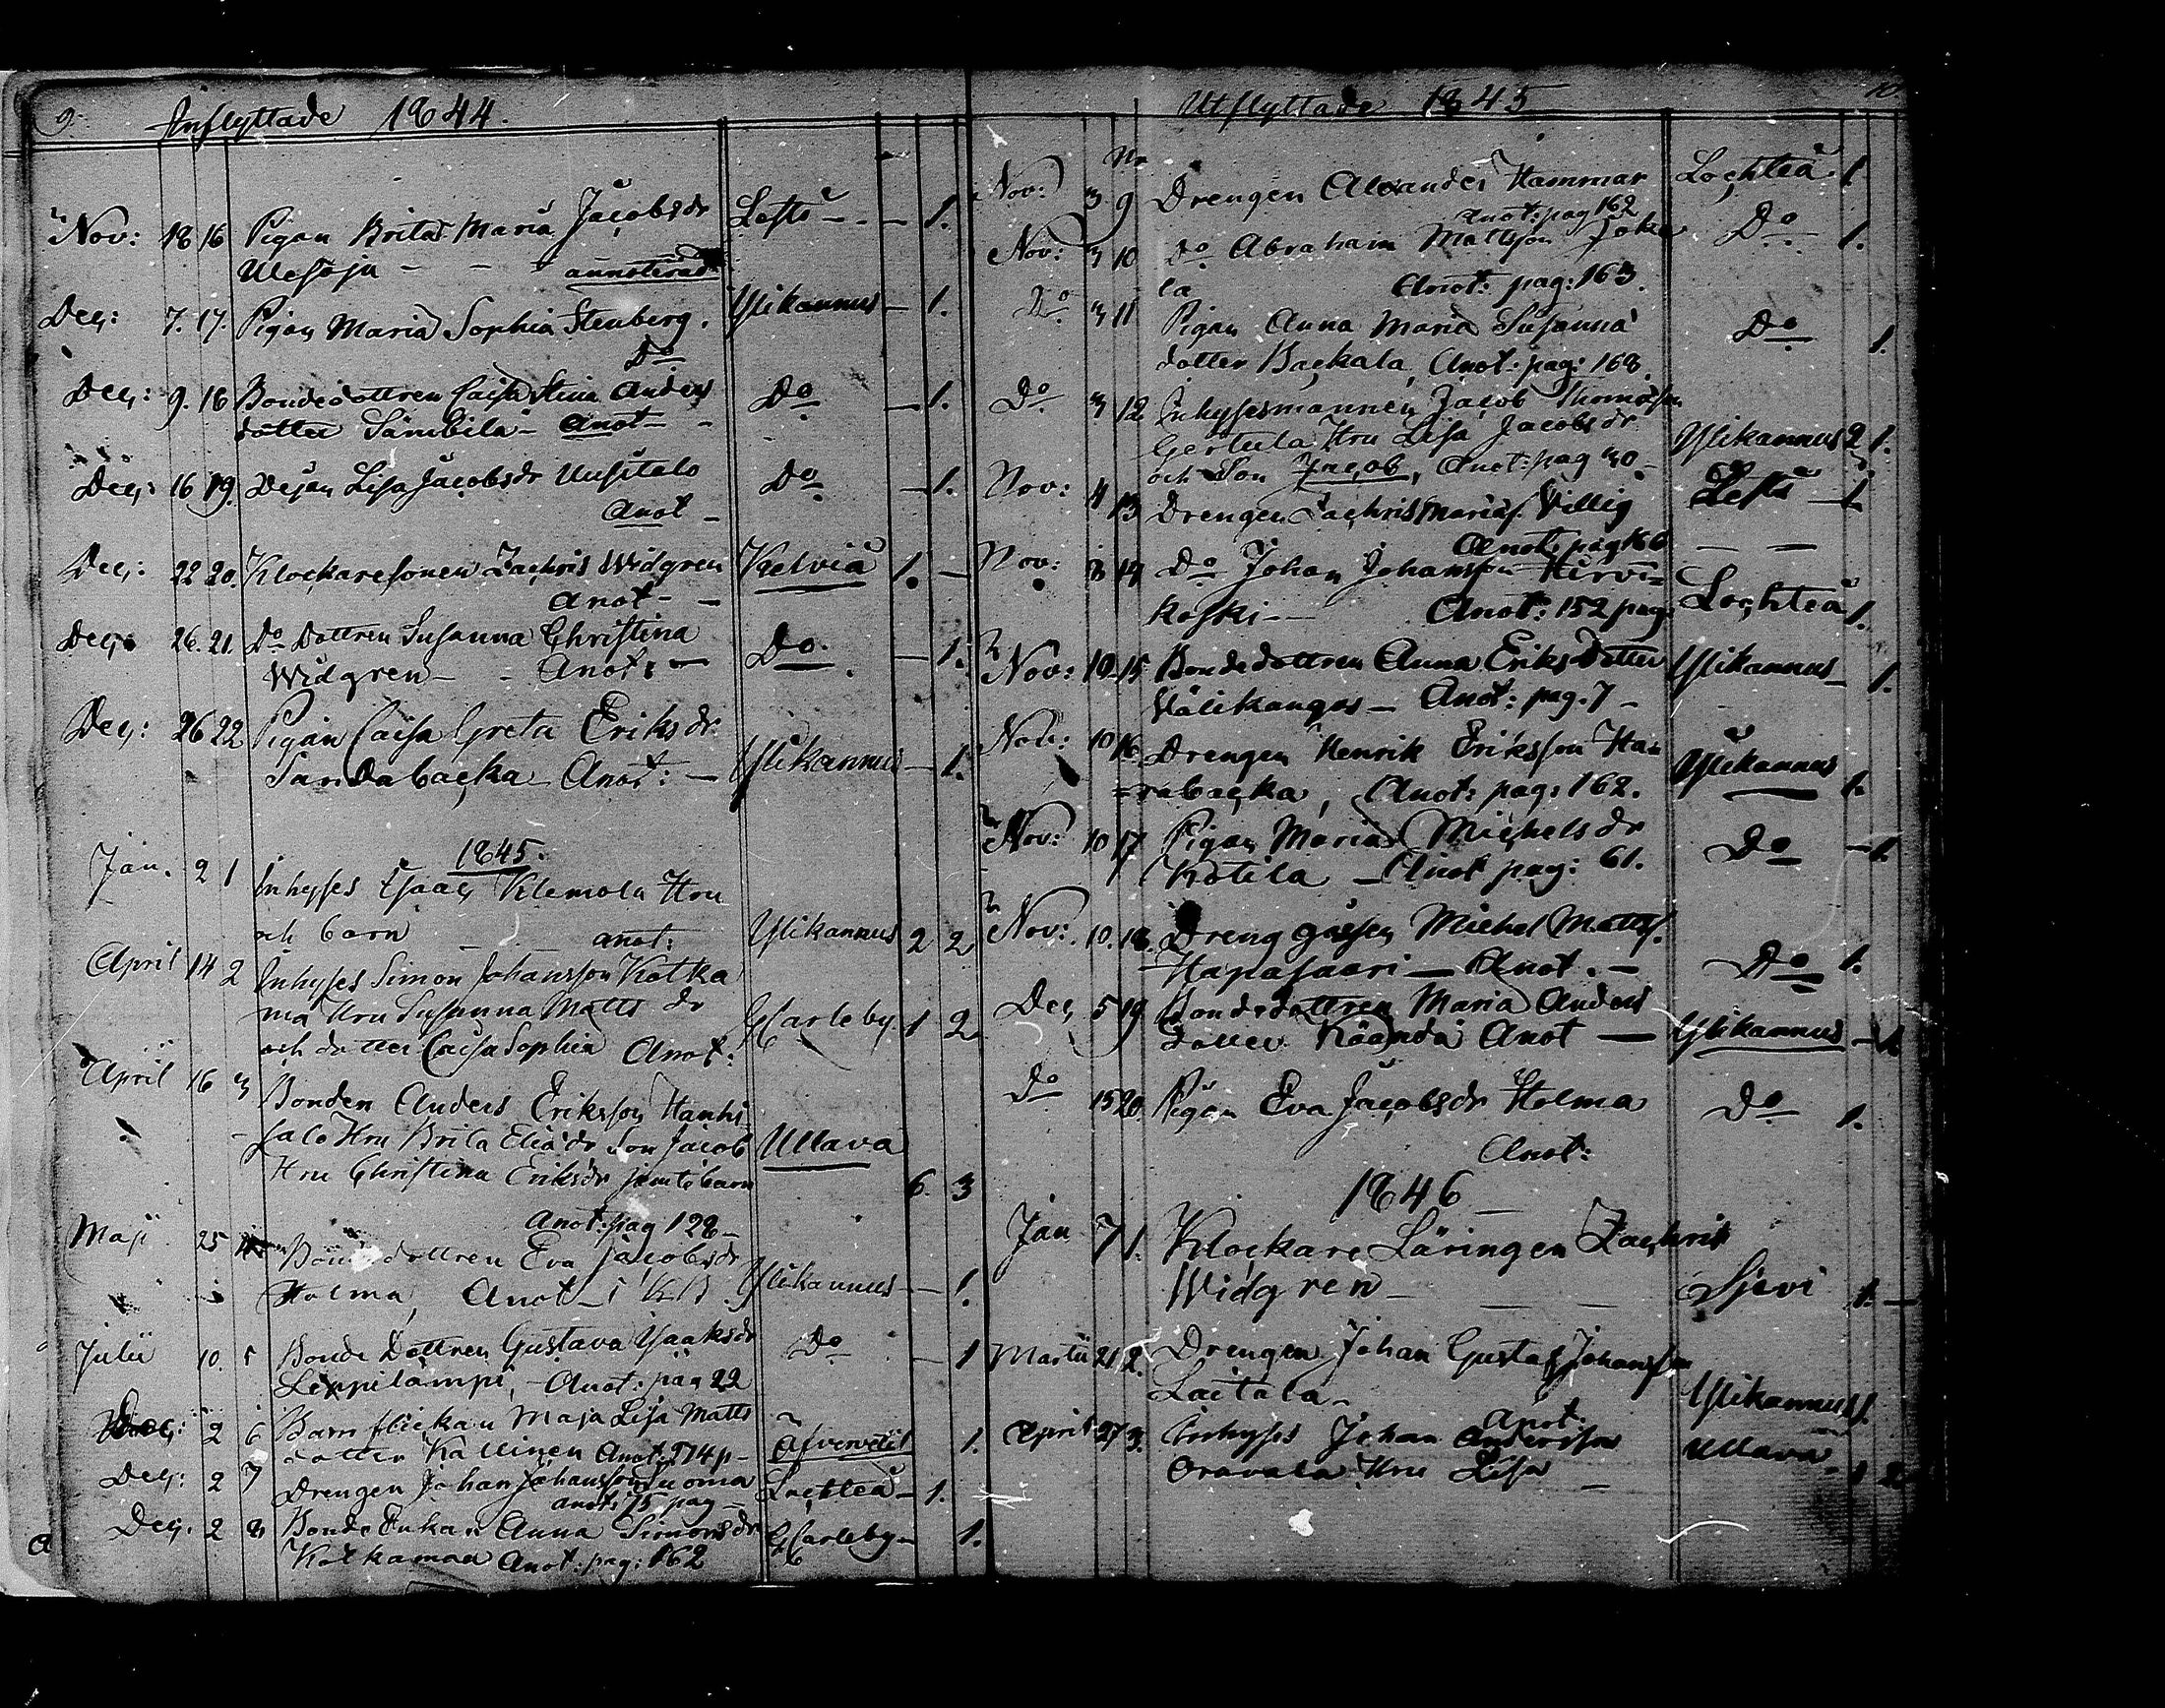 9. Inflyttade 1844.
Nov: 18 16 Pigan Brita Maria Jacobsdr Lesto - - 1.
Ulesoja - - annoterad
Dec: 7. 17. Pigan Maria Sophia Stenberg. Ylikannus - 1.
Do
Dec: 9. 18 Bondedottren Caisa Stina Anders Do - 1.
dotter Sämbilä - Anot - -
Dec: 16 19. Dejan Lisa Jacobsdr Uusitalo Do - 1.
Anot -
Dec: 22 20. Klockaresonen Zachris Widgren Kelviå 1. -
Anot - -
Dec: 26. 21. Do Dottren Susanna Christina Do. - 1.
Widgren - - Anot: -
Dec: 26 22 Pigan Caisa Greta Eriksdr
Sandabacka Anot: - Ylikannus - 1.
1845.
Jan. 2 1 Inhyses Isaac Klemola Hru
och barn - - anot: Ylikannus 2 2
April 14 2 Inhyses Simon Johansson Kotka
ma Hru Susanna Matts dr GCarleby. 1 2.
och dotter Caisa Sophia Anot:
April 16 3 Bonden Anders Eriksson Hanhi
salo Hru Brita Eliädr Son Jacob Ullava
Hru Christina Eriksdr jemte barn 6. 3
Anot: pag 128 -
Maji 25 Bondedottren Eva Jacobsdr
Holma, Anot - Ylikannus - 1.
Julii 10. 5 Bonde Dottren Gustava Ysaaksdr Do - 1
Leppilampi, - Anot: pag 22
Dec: 2 6 Barnflickan Maja Lisa Matts
dotter Kallinen Anot: 174 p - Öfvervetil 1.
Dec: 2 7 Drengen Johan Johansson Tuoma Lochteå - 1.
anot: 75 pag -
Dec. 2 8 Bonde Enkan Anna Simonsdr GCarleby - 1.
Kotkamaa Anot: pag: 162
Utflyttade 1845 10
Nr
Nov: 3 9 Drengen Alexander Hammar Lochteå 1
Anot: pag 162
Nov: 3 10 Do Abraham Mattsson Joke Do 1.
la Anot: pag: 163.
Do 3 11 Pigan Anna Maria Susanna Do 1.
dotter Backala, Anot: pag: 168.
Do 3 12 Inhysesmannen Jacob Thomasson
Gertula Hru Lisa Jacobsdr Ylikannus 2 1.
och Son Jacob, Anot: pag 30 -
Nov: 4 13 Drengen Zachris Mariäs. Villig Lesto - 1
Anot: pag 166
Nov: 8 14 Do Johan Johansson Hirvi=
koski - - Anot: 152 pag. Lochteå 1.
Nov: 10 15 Bondedottren Anna Eriks Dotter Ylikannus - 1.
Välikangas - Anot: pag. 7 -
Nov: 10 16 Drengen Henrik Eriksson Han
=rabacka, Anot: pag: 162. Ylikannus 1.
Nov: 10 17 Pigan Maria Michelsdr Do - 1
Kotila - Anot pag: 61.
Nov: 10. 18. Dreng gåssen Michel Matts.
Hapasaari - Anot. - Do 1.
Dec 5 19 Bondedottren Maria Anders
dotter Käända Anot - Ylikannus - 1
Do 15 20 Pigan Eva Jacobsdr Holma Do 1.
Anot:
1846
Jan 7 1. Klockare Läringen Zachris
Widgren - - - Sjevi 1. -
Martii 21 2. Drengen Johan Gustaf Johansson
Laitala - Ylikannus 1.
Anot.
April 27 3. Inhyses Johan Andersson Ullava
Oravala Hru Lisa - 1 2